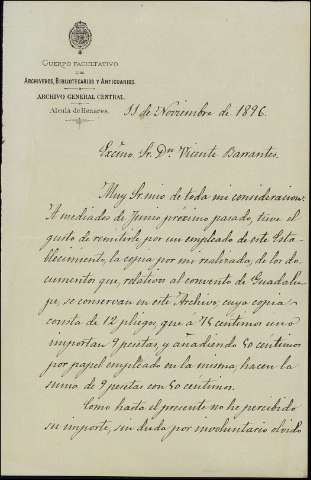 CUERPO FACULTATIVO
DE
ARCHIVEROS, BIBLIOTECARIOS Y ANTICUARIOS.
ARCHIVO GENERAL CENTRAL.
Alcalá de Henares.
11 de Noviembre de 1896.
Excmo. Sr. Dn. Vicente Barrantes.
Muy Sr. mio de toda mi consideracion:
A mediados de Junio próximo pasado, tuve el
gusto de remitirle por un empleado de este Esta-
blecimiento, la copia por mi realizada, de los do-
cumentos que, relativos al convento de Guadalu-
pe, se conservan en este Archivo, cuya copia
consta de 12 pliegos, que a 75 centimos uno
importan 9 pesetas, y añadiendo 50 centimos
por papel empleado en la misma, hacen la
suma de 9 pesetas con 50 centimos.
Como hasta el presente no he percibido
su importe, sin duda por involuntario olvido